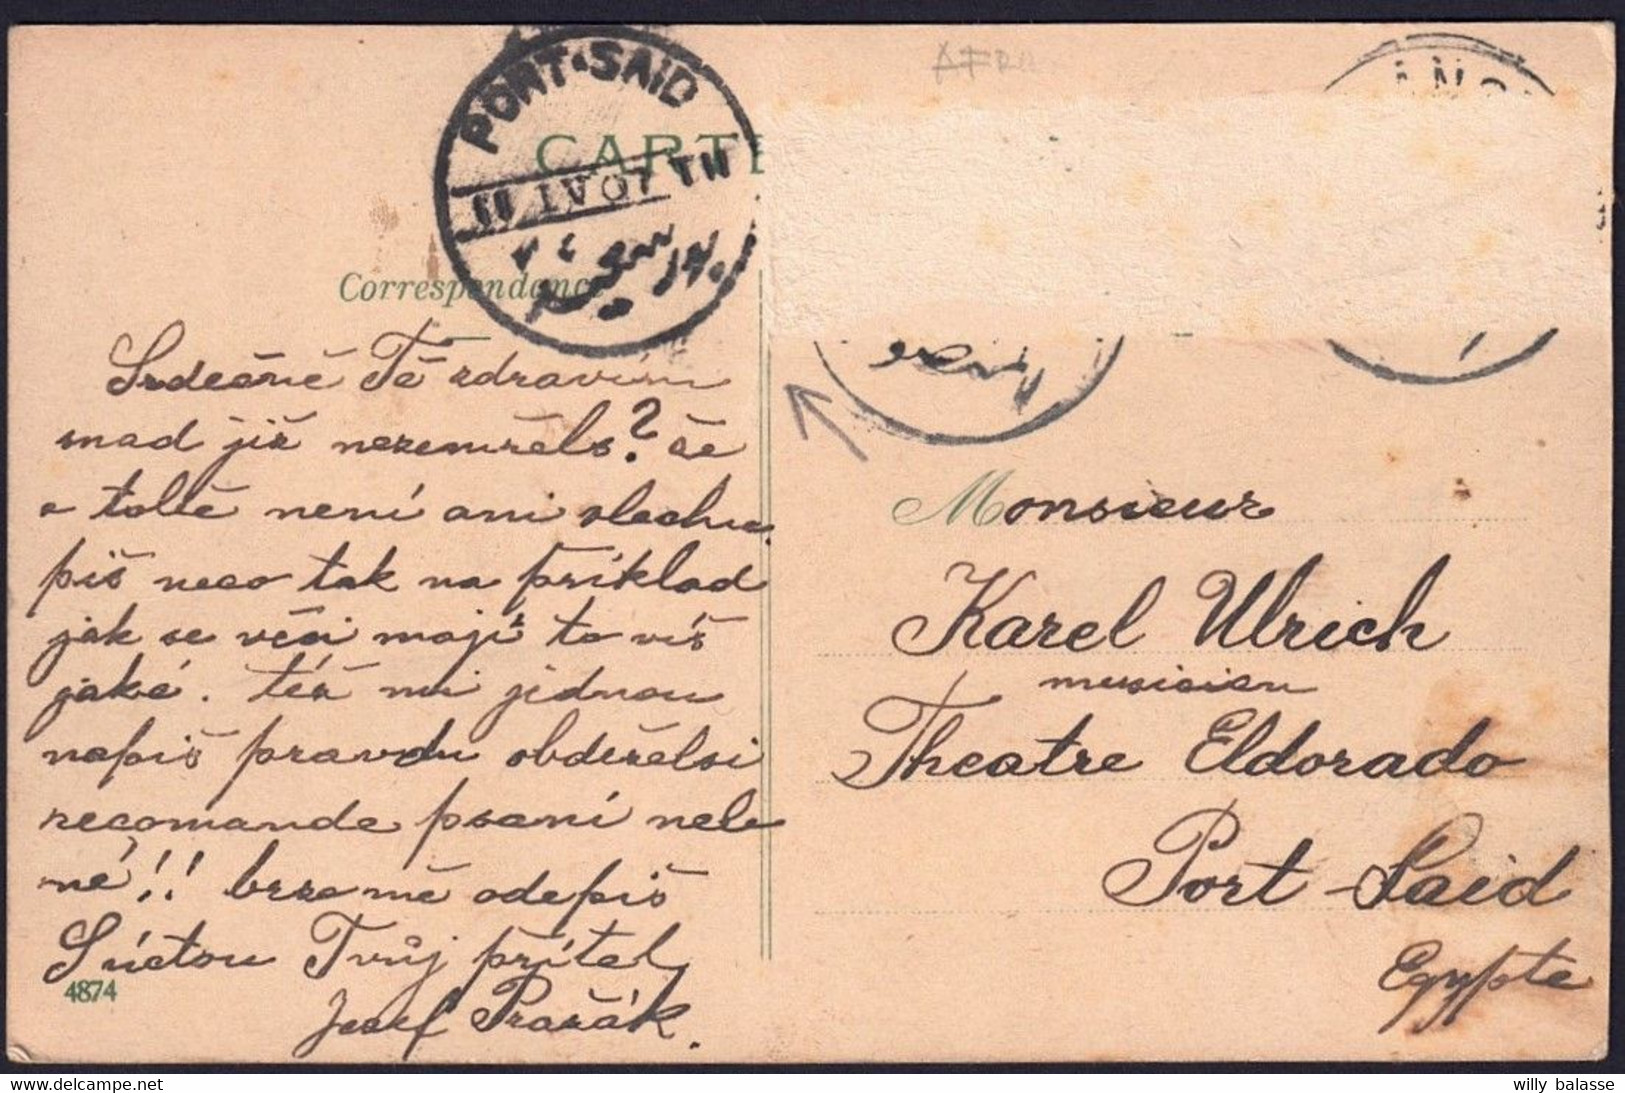 PORT-SAID
CARTE
Correspondance
Srdečně Tě zdravím
snad již nezemřels? že
o tobě není ani slechu.
piš neco tak na příklad
jak se věci mají to víš
jaké. též mi jednou
napiš pravdu obdrželsi
recomande psaní nebo
né!! brzo mě odepiš
S úctou Tvůj přítel
Josef Pražák.
4874
Monsieur
Karel Ulrich
musicien
Theatre Eldorado
Port-Said
Egypte
willy balasse